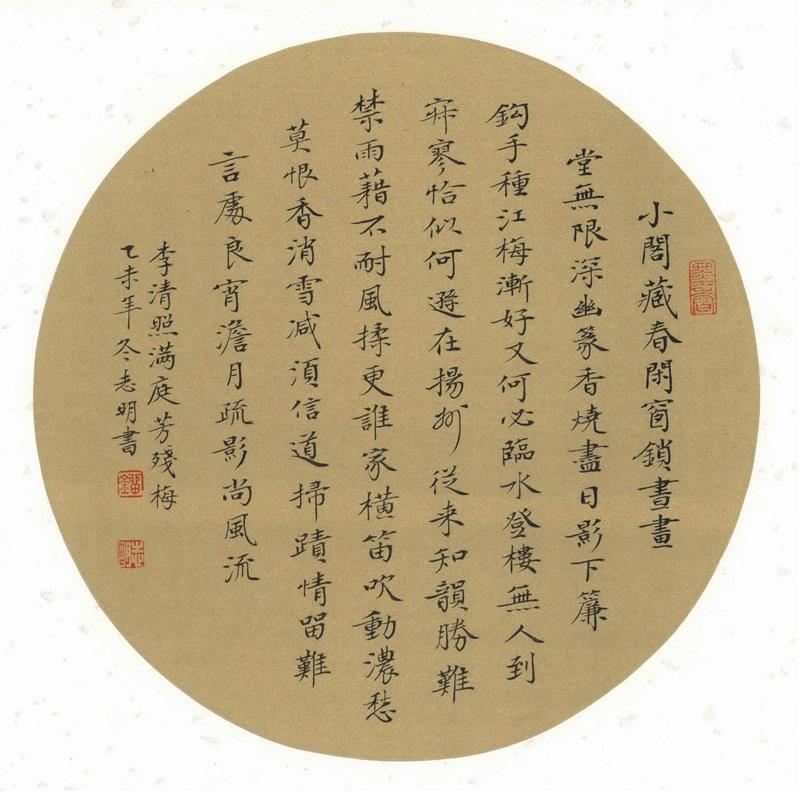 小閣藏春閑窗鎖晝畫
堂無限深幽篆香燒盡日影下簾
鈎手種江梅漸好又何必臨水登樓無人到
寂寥恰似何遜在揚州從来知韻勝難
禁雨藉不耐風揉更誰家橫笛吹動濃愁
莫恨香消雪减須信道掃蹟情留難
言處良宵澹月疏影尚風流
李清照满庭芳殘梅
乙未年冬志明書